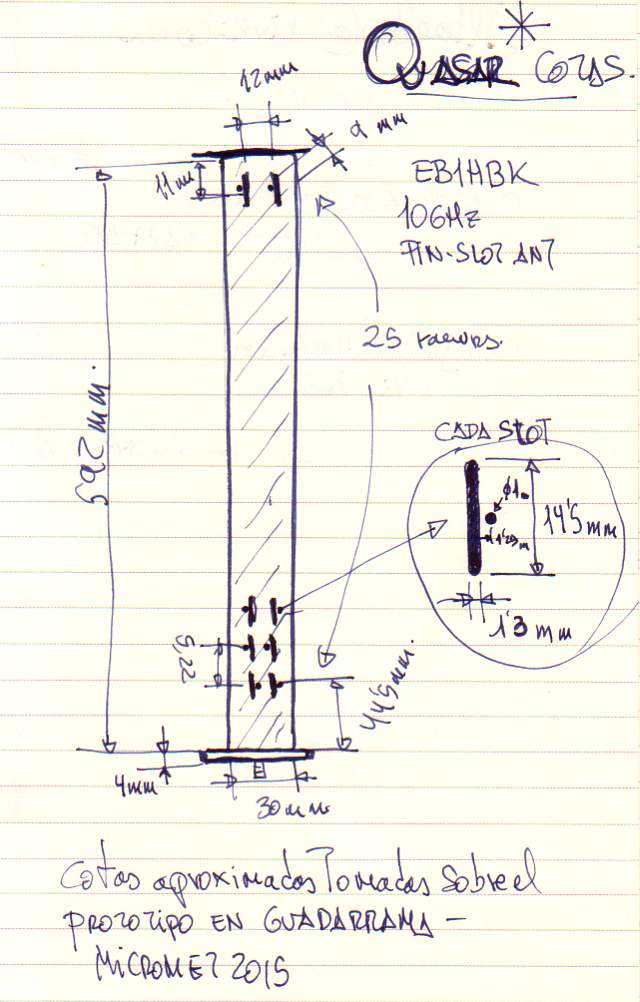 QUASAR COTAS.
12mm
α mm
11mm
EB1HBK
10GHz
FIN-SLOT ANT
25
592 mm.
CADA SLOT
φ1m
14'5mm
1'25m
1'3mm
5,22
44'5mm.
4mm
30mm
Cotas aproximadas Tomadas Sobre el
PROTOTIPO EN GUADARRAMA -
MICROMET 2015